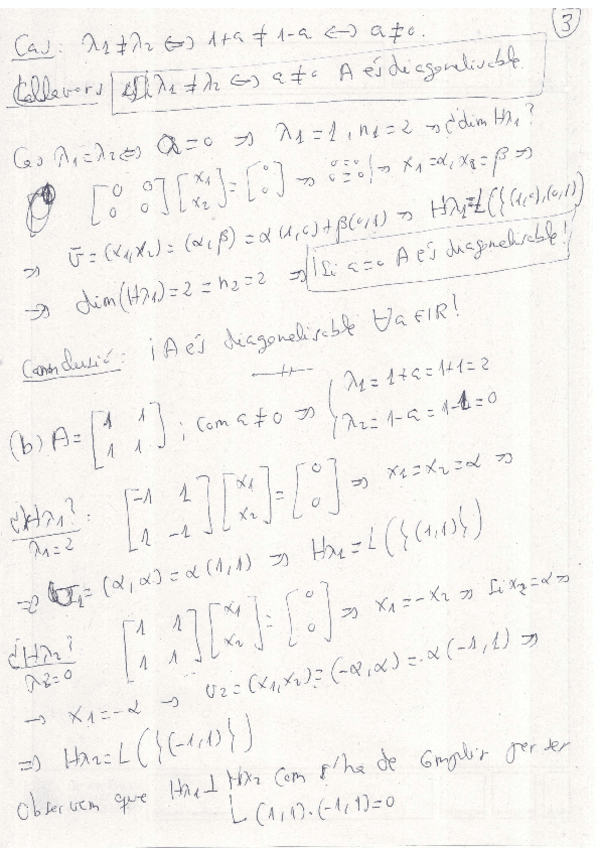 3
Cas: λ1≠λ2 ⇔ 1+a ≠ 1-a ⇔ a≠0.
Llavors Si λ1≠λ2 ⇔ a≠0 A és diagonalisable
Cas λ1=λ2 ⇔ a=0 ⇒ λ1=1, n1=2 → ¿dim Hλ1?
[0 0; 0 0] [x1; x2] = [0; 0] ⇒ 0=0 0=0 ⇒ x1=α, x2=β ⇒
⇒ v̄=(x1,x2)=(α,β)=α(1,0)+β(0,1) ⇒ Hλ1=L({(1,0),(0,1)
⇒ dim(Hλ1)=2=n2=2 ⇒ ¡Si a=0 A és diagonalisable!
Conclusió: ¡A és diagonalisable ∀a∈ℝ!
(b) A=[1 1; 1 1]; com a≠0 ⇒ { λ1=1+a=1+1=2
λ2=1-a=1-1=0
¿Hλ1? λ1=2: [-1 1; 1 -1] [x1; x2] = [0; 0] ⇒ x1=x2=α ⇒
⇒ v1=(α,α)=α(1,1) ⇒ Hλ1=L({(1,1)})
¿Hλ2? λ2=0 [1 1; 1 1] [x1; x2] = [0; 0] ⇒ x1=-x2 ⇒ Si x2=α ⇒
→ x1=-α → v2=(x1,x2)=(-α,α)=α(-1,1) ⇒
⇒ Hλ2=L({(-1,1)})
Observem que Hλ1⊥Hλ2 com s'ha de complir per ser
(1,1)·(-1,1)=0